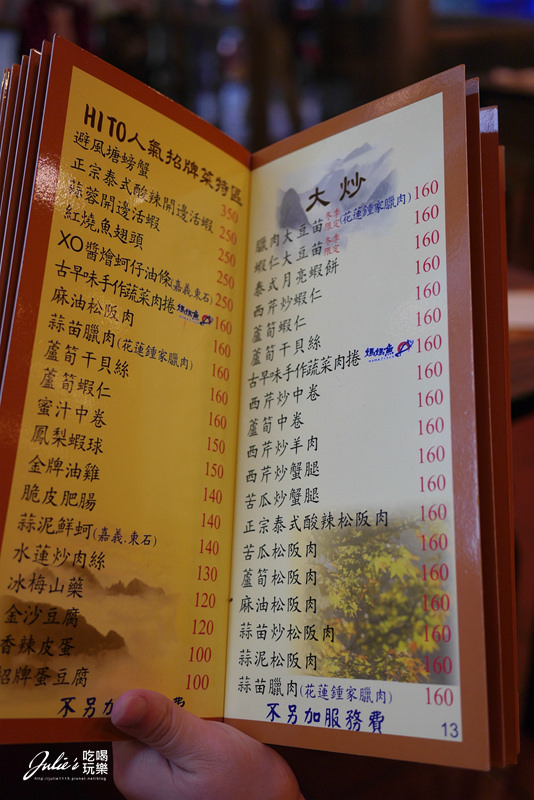 HITO人氣招牌菜特區
避風塘螃蟹 350
正宗泰式酸辣開邊活蝦 250
蒜蓉開邊活蝦 250
紅燒魚翅頭 250
XO醬燴蚵仔油條(嘉義.東石) 250
古早味手作蔬菜肉捲 160
麻油松阪肉 160
蒜苗臘肉(花蓮鍾家臘肉) 160
蘆筍干貝絲 160
蘆筍蝦仁 160
蜜汁中卷 150
鳳梨蝦球 150
金牌油雞 140
脆皮肥腸 140
蒜泥鮮蚵(嘉義.東石) 140
水蓮炒肉絲 130
冰梅山藥 120
金沙豆腐 120
香辣皮蛋 100
招牌蛋豆腐 100
不另加 務費
大炒
臘肉大豆苗 冬季限定(花蓮鍾家臘肉) 160
蝦仁大豆苗 冬季限定 160
泰式月亮蝦餅 160
西芹炒蝦仁 160
蘆筍蝦仁 160
蘆筍干貝絲 160
古早味手作蔬菜肉捲 160
西芹炒中卷 160
蘆筍中卷 160
西芹炒羊肉 160
西芹炒蟹腿 160
苦瓜炒蟹腿 160
正宗泰式酸辣松阪肉 160
苦瓜松阪肉 160
蘆筍松阪肉 160
麻油松阪肉 160
蒜苗炒松阪肉 160
蒜泥松阪肉 160
蒜苗臘肉(花蓮鍾家臘肉) 160
不另加服務費
13
Julie's 吃喝玩樂
http://julie1115.pixnet.net/blog